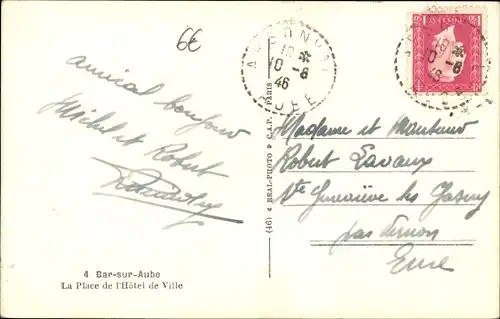 6€
ARSONVAL
18 *
10 -8
46
AUBE
amical bonjour
Michel et Robert
4 Bar-sur-Aube
La Place de l'Hôtel de Ville
(46) « REAL-PHOTO » C.A.P. - PARIS
Madame et Monsieur
Robert Lavaux
Ste Geneviève les Gasny
par Vernon
Eure